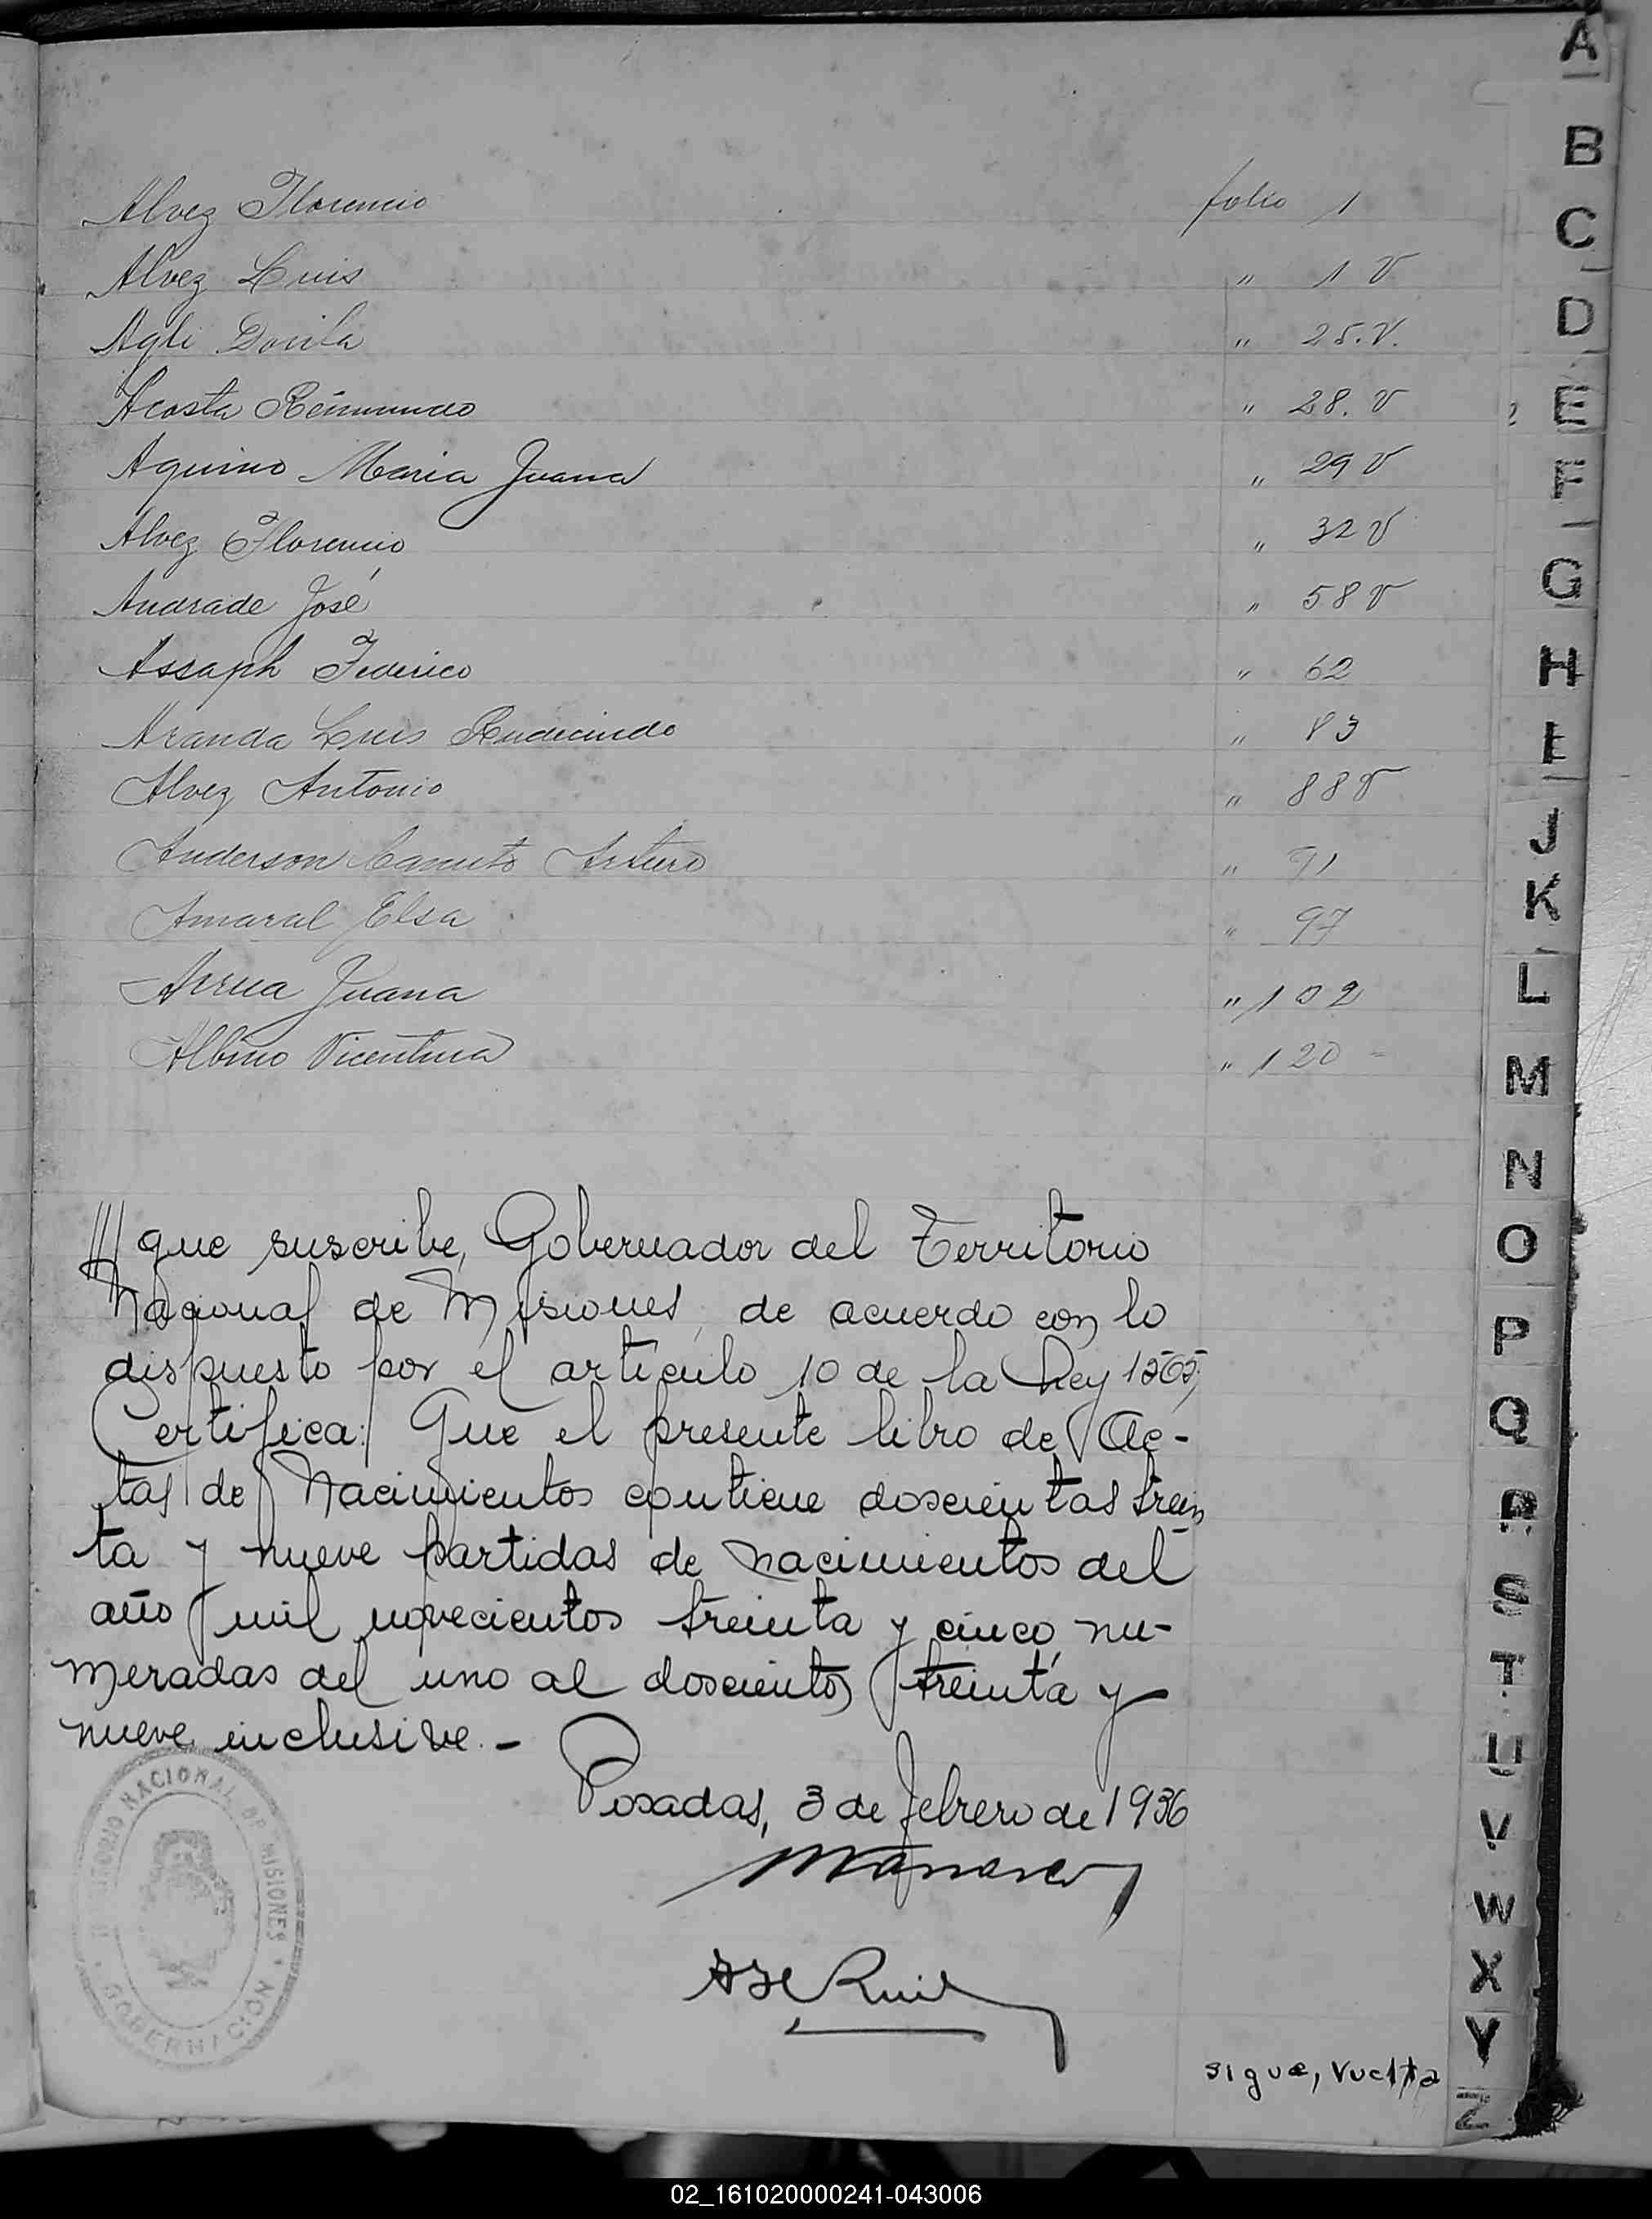 Alvez Florencio folio 1
Alvez Luis " 1 V
Agli Dorila " 25.V.
Acosta Reimundo " 28. V
Aquino Maria Juana " 29 V
Alvez Florencio " 32 V
Andrade José " 58 V
Assaph Federico " 62
Aranda Luis Rudecindo " 83
Alvez Antonio " 88 V
Anderson Canuto Arturo " 91
Amaral Elsa " 97
Arrua Juana " 102
Albino Vicentina " 120 =
que suscribe, Gobernador del Territorio
Nacional de Misiones, de acuerdo con lo
dispuesto por el artículo 10 de la Ley 1565,
Certifica: Que el presente libro de Ac-
tas de Nacimientos contiene doscientas trein
ta y nueve partidas de nacimientos del
año mil novecientos treinta y cinco, nu-
meradas del uno al doscientos treinta y
nueve inclusive.-
Posadas, 3 de febrero de 1936
Ruiz
TERRITORIO NACIONAL DE MISIONES
GOBERNACIÓN
sigue, vuelta
A
B
C
D
E
F
G
H
I
J
K
L
M
N
O
P
Q
R
S
T
U
V
W
X
Y
Z
02_161020000241-043006